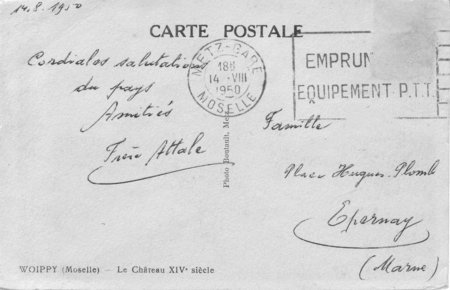 14.8.1950
CARTE POSTALE
Cordiales salutations
du pays
Amitiés
METZ-GARE
18H
14 -VIII
1950
MOSELLE
EMPRUN
EQUIPEMENT P.T.T.
Famille
Place Hugues Plomb
Epernay
(Marne)
WOIPPY (Moselle) - Le Château XIVe siècle